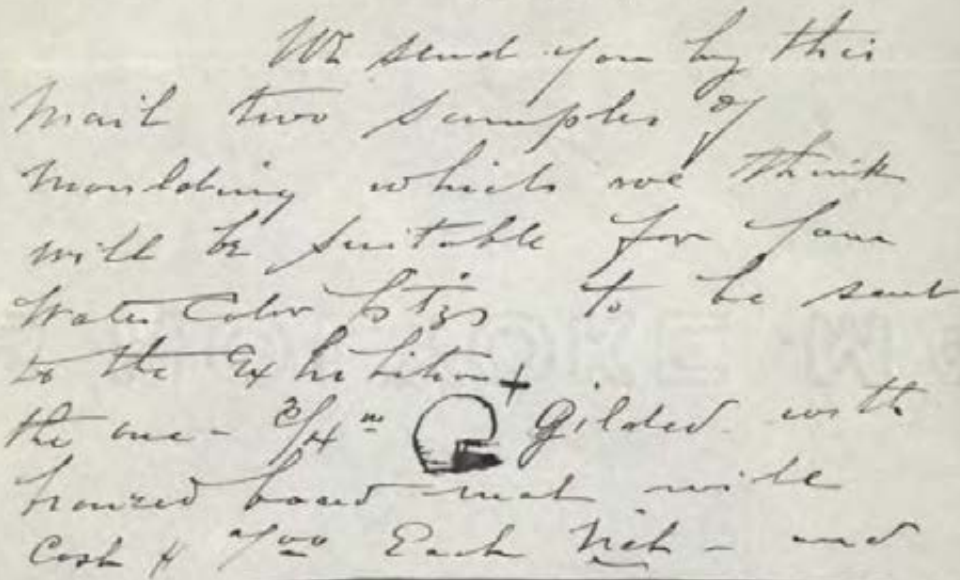 We send you by this
Mail two samples of
Moulding which we think
will be suitable for your
Water Color to be sent
to the Exhibition +
the one - 3/4 in Gilded with
bronzed board mat will
Cost Each Net - and